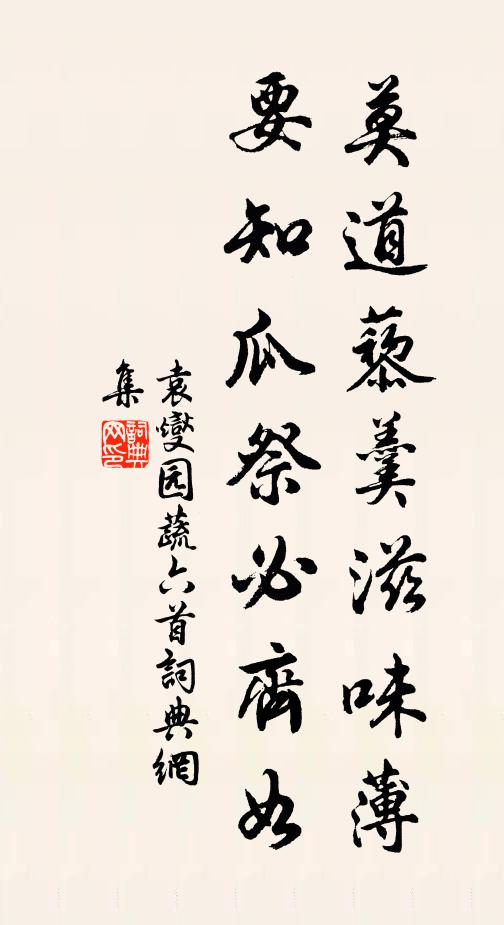 莫道藜羹滋味薄
要知瓜祭必齊如
袁燮园蔬六首詞典網
集
詞典
网印